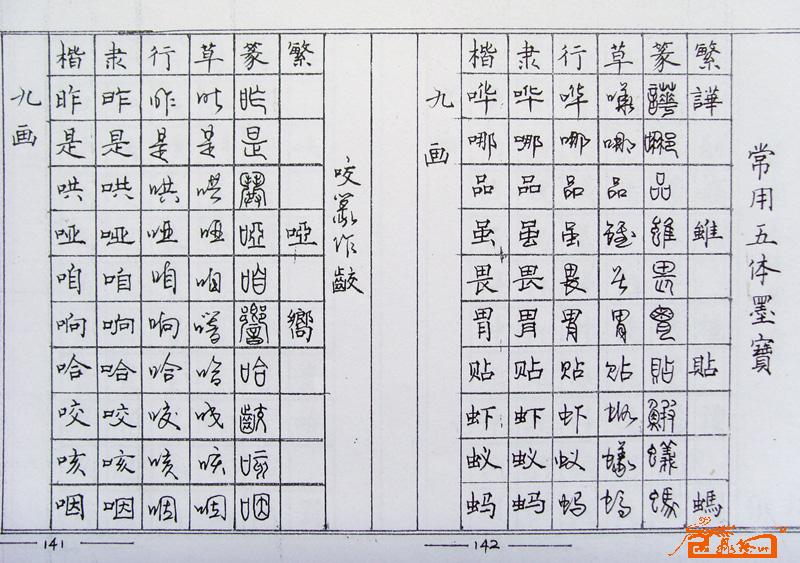 常用五体墨寶
楷 隶 行 草 篆 繁
哗 哗 哗 嘩 譁 譁
哪 哪 哪 哪 哪
品 品 品 品 品
虽 虽 虽 雖 雖 雖
畏 畏 畏 畏 畏
胃 胃 胃 胃 胃
贴 贴 贴 贴 貼 貼
虾 虾 虾 虾 鰕
蚁 蚁 蚁 蟻 蟻
蚂 蚂 蚂 螞 螞 螞
九画
142
咬篆作齩
楷 隶 行 草 篆 繁
昨 昨 昨 昨 昨
是 是 是 是 是
哄 哄 哄 哄 鬨
哑 哑 哑 啞 啞 啞
咱 咱 咱 咱 咱
响 响 响 響 響 嚮
哈 哈 哈 哈 哈
咬 咬 咬 咬 齩
咳 咳 咳 咳 咳
咽 咽 咽 咽 咽
九画
141